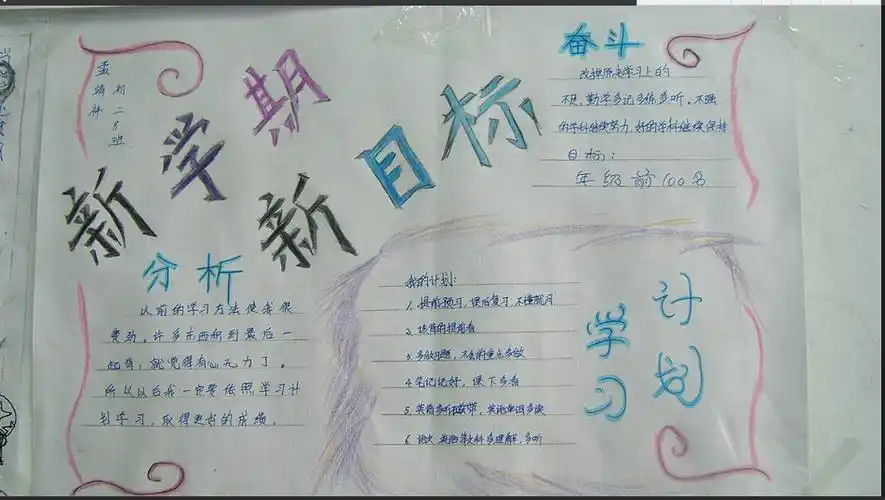 孟
初二8班
新学期
新目标
奋斗
改掉原先学习上的
不足,勤学多记多练多听。不强
的学科继续努力,好的学科继续保持
目标:
年级前100名
分析
以前的学习方法使我很
费劲。许多东西积到最后一
起背,就觉得有心无力了。
所以以后我一定要依照学习计
划学习,取得更好的成绩。
我的计划:
1.提前预习,课后复习,不懂就问
2.该背的提前背
3.多做习题,不会的重点多做
4.笔记记好,课下多看
5.英语多听磁带,英语单词多读
6.语文 英语等文科多理解,多听
学习
计划